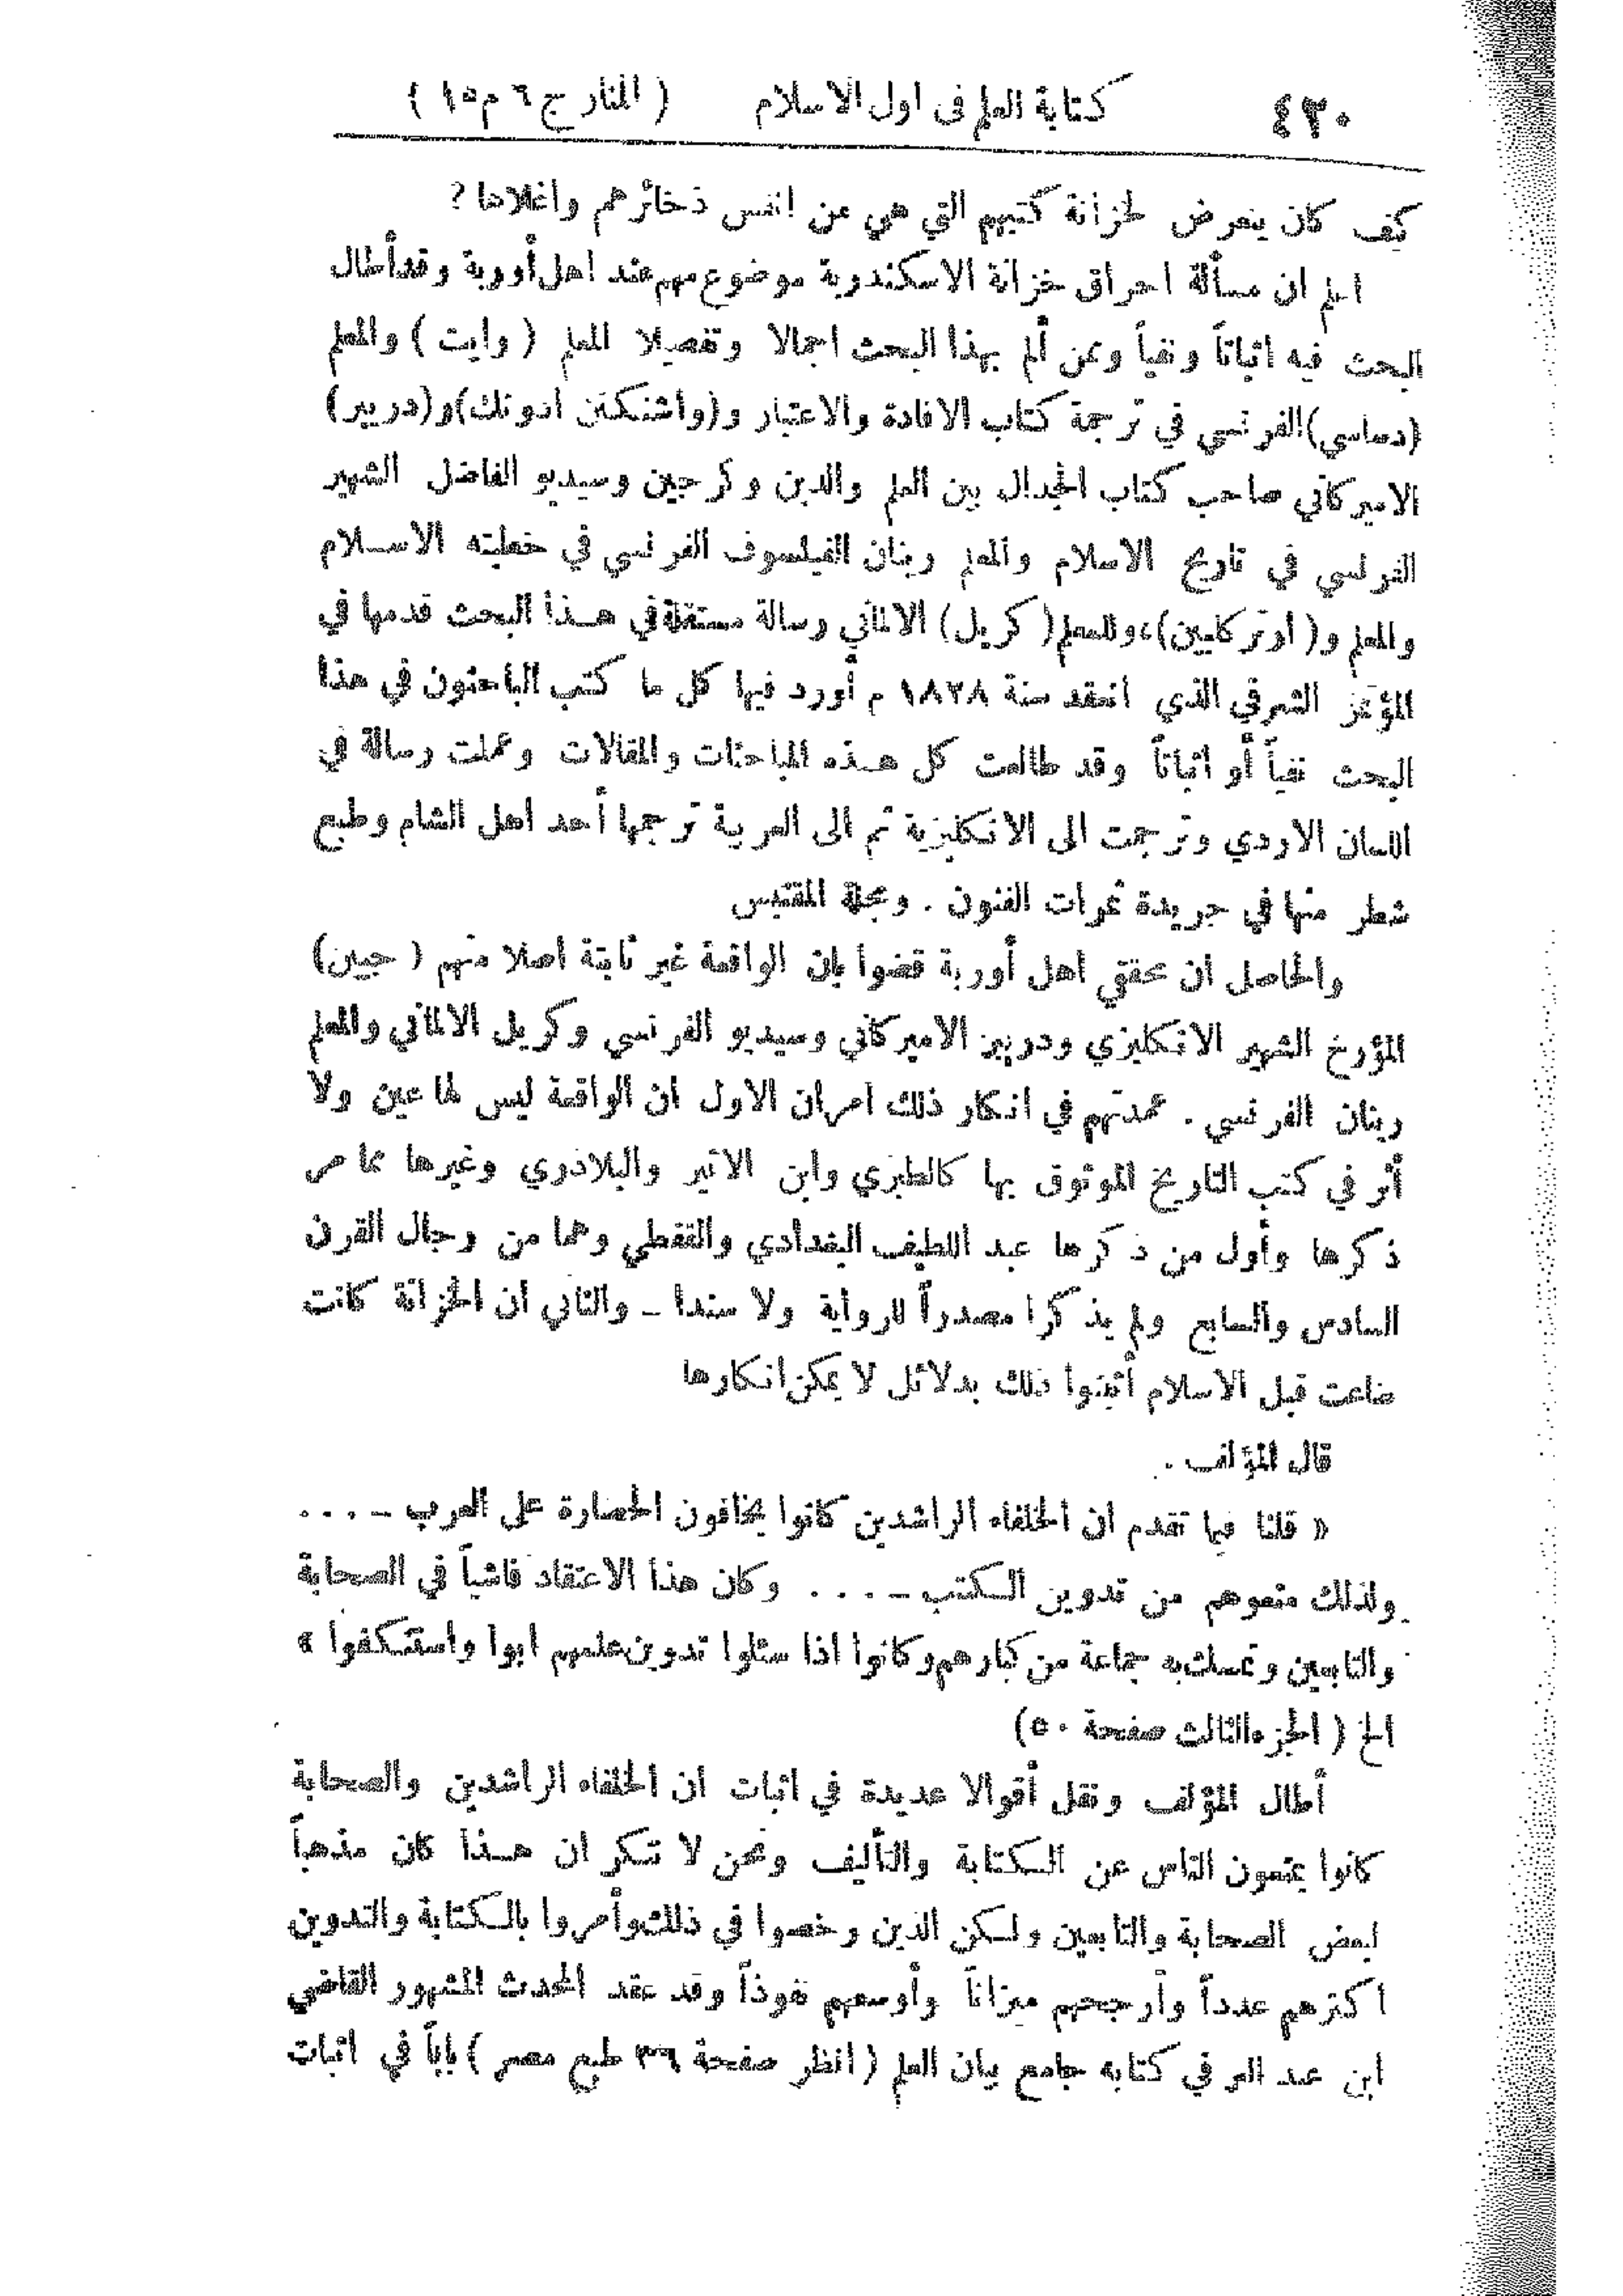 ٤٣٠ كتابة العلم في اول الاسلام ( المنار ج ٦ م ١٥ )
كيف كان يتعرض لخزانة كتبهم التي هي عن انفس ذخائرهم وأغلاها ?
اعلم ان مسألة احراق خزانة الاسكندرية موضوع مهم عند اهل أوربة وقد أطال
البحث فيه اثباتاً ونفياً وممن ألم بهذا البحث اجمالا وتفصيلا المعلم ( وايت ) والمعلم
(دساسي) الفرنسي في ترجمة كتاب الافادة والاعتبار و(واشنكتن ارونك) و(دريبر)
الاميركاني صاحب كتاب الجدال بين العلم والدين وكرجين وسيديو الفاضل الشهير
الفرنسي في تاريخ الاسلام والمعلم رينان الفيلسوف الفرنسي في خطبته الاسلام
والعلم و( ارتركلين)، وللمعلم ( كريل) الالماني رسالة مستقلة في هذا البحث قدمها في
المؤتمر الشرقي الذي انعقد سنة ١٨٢٨ م أورد فيها كل ما كتب الباحثون في هذا
البحث نفياً أو اثباتاً وقد طالعت كل هذه المباحثات والمقالات وعملت رسالة في
اللسان الاردي وترجمت الى الانكليزية ثم الى العربية ترجمها أحد اهل الشام وطبع
شطر منها في جريدة ثمرات الفنون . ومجلة المقتبس
والحاصل ان محققي اهل أوربة قضوا بان الواقعة غير ثابتة اصلا منهم ( جيبن)
المؤرخ الشهير الانكليزي ودريبر الاميركاني وسيديو الفرنسي وكريل الالماني والمعلم
رينان الفرنسي . عمدتهم في انكار ذلك امران الاول ان الواقعة ليس لها عين ولا
أثر في كتب التاريخ الموثوق بها كالطبري وابن الاثير والبلاذري وغيرها مما مر
ذكرها وأول من ذكرها عبد اللطيف البغدادي والقفطي وهما من رجال القرن
السادس والسابع ولم يذكرا مصدراً للرواية ولا سندا ــ والثاني ان الخزانة كانت
ضاعت قبل الاسلام أثبتوا ذلك بدلائل لا يمكن انكارها
قال المؤلف .
« قلنا فيما تقدم ان الخلفاء الراشدين كانوا يخافون الحضارة على العرب ــ . . . .
ولذلك منعوهم من تدوين الكتب ــ . . . . وكان هذا الاعتقاد فاشياً في الصحابة
والتابعين وتمسك به جماعة من كبارهم وكانوا اذا سئلوا تدوين علمهم ابوا واستنكفوا »
الخ ( الجزء الثالث صفحة ٥٠)
أطال المؤلف ونقل أقوالا عديدة في اثبات ان الخلفاء الراشدين والصحابة
كانوا يمنعون الناس عن الكتابة والتأليف ونحن لا ننكر ان هذا كان مذهباً
لبعض الصحابة والتابعين ولكن الذين رخصوا في ذلك وأمروا بالكتابة والتدوين
اكثرهم عدداً وأرجحهم ميزاناً وأوسعهم نفوذاً وقد عقد المحدث المشهور القاضي
ابن عبد البر في كتابه جامع بيان العلم ( انظر صفحة ٣٦ طبع مصر ) باباً في اثبات